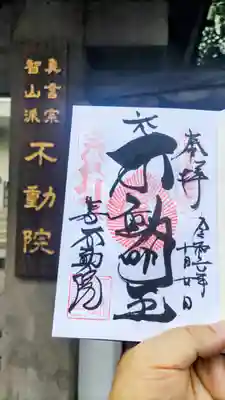 真言宗
智山派
不動院
奉拝
令和六年
十月廿日
六
不動明王
不動院